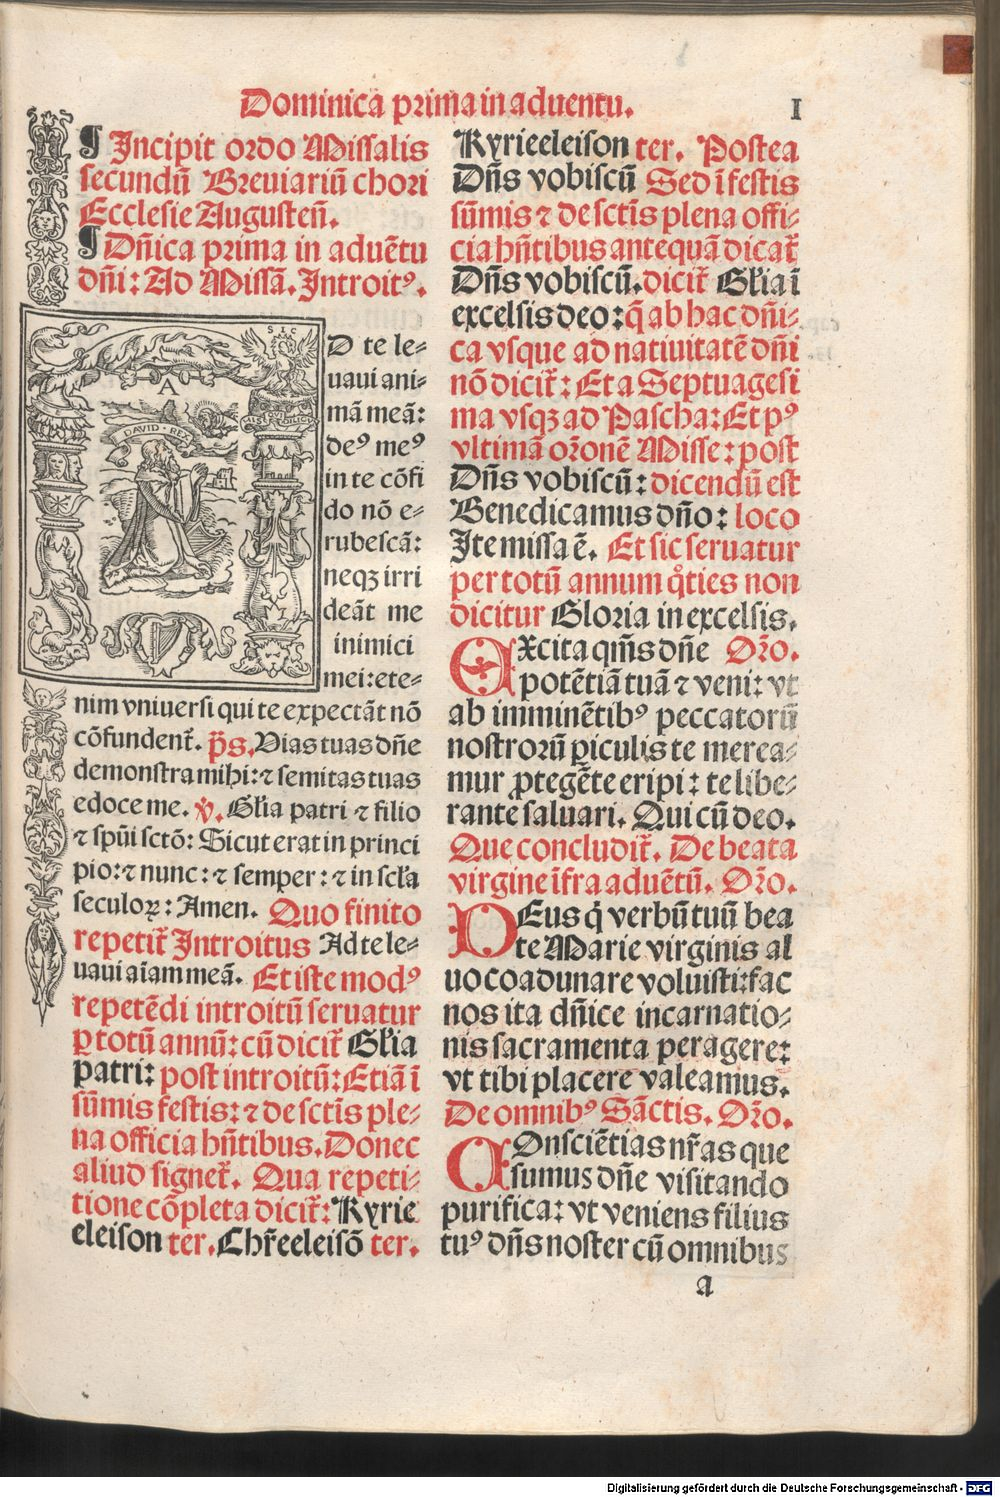 Dominica prima in aduentu.
I
¶ Incipit ordo Missalis
secundū Breuiariū chori
Ecclesie Augusteñ.
¶ Dñica prima in aduētu
dñi: Ad Missā. Introitꝰ.
SIC
A
QVI
MISERICORDIA
DAVID · REX
D te le⸗
uaui ani⸗
mā meā:
deꝰ meꝰ
in te cōfi
do nō e⸗
rubescā:
neqꝫ irri
deāt me
inimici
mei: ete⸗
nim vniuersi qui te expectāt nō
cōfundent̄. p̄s. Vias tuas dñe
demonstra mihi: ⁊ semitas tuas
edoce me. ℣. Gl̄ia patri ⁊ filio
⁊ spūi sctō: Sicut erat in princi
pio: ⁊ nunc: ⁊ semper: ⁊ in scl̄a
seculoꝝ: Amen. Quo finito
repetit̄ Introitus Ad te le⸗
uaui aīam meā. Et iste modꝰ
repetēdi introitū seruatur
ꝑ totū annū: cū dicit̄ Gl̄ia
patri: post introitū: Etiā ī
sūmis festis: ⁊ de sctīs ple⸗
na officia hñtibus. Donec
aliud signet̄. Qua repeti⸗
tione cōpleta dicit̄: Kyrie
eleison ter. Chr̄eeleisō ter.
Kyrieeleison ter. Postea
Dñs vobiscū Sed ī festis
sūmis ⁊ de sctīs plena offi⸗
cia hñtibus antequā dicat̄
Dñs vobiscū. dicit̄ Gl̄ia ī
excelsis deo: q̄ ab hac dñi⸗
ca vsque ad natiuitatē dñi
nō dicit̄: Et a Septuagesi
ma vsqꝫ ad Pascha: Et pꝰ
vltimā or̄onē Misse: post
Dñs vobiscū: dicendū est
Benedicamus dño: loco
Ite missa ē. Et sic seruatur
per totū annum q̊ties non
dicitur Gloria in excelsis.
EXcita qm̄s dñe Or̄o.
potētiā tuā ⁊ veni: vt
ab imminētibꝰ peccatorū
nostrorū ꝑiculis te merea⸗
mur ꝓtegēte eripi: te libe⸗
rante saluari. Qui cū deo.
Que concludit̄. De beata
virgine īfra aduētū. Or̄o.
DEus q̇ verbū tuū bea
te Marie virginis al
uo coadunare voluisti: fac
nos ita dñice incarnatio⸗
nis sacramenta peragere:
vt tibi placere valeamus.
De omnibꝰ Sāctis. Or̄o.
COnsciētias nr̄as que
sumus dñe visitando
purifica: vt veniens filius
tuꝰ dñs noster cū omnibus
a
Digitalisierung gefördert durch die Deutsche Forschungsgemeinschaft - DFG